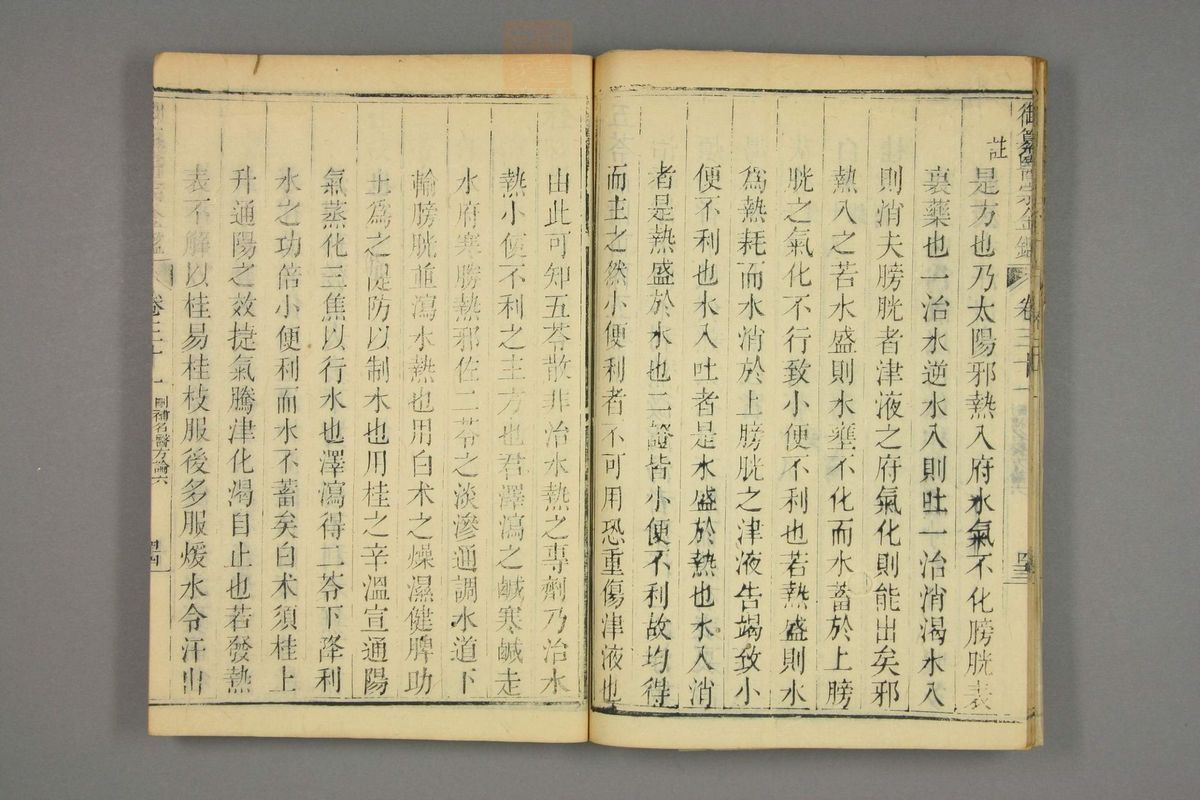 御纂醫宗金鑑 卷三十一 四三
註
是方也乃太陽邪熱入府水氣不化膀胱表
裏藥也一治水逆水入則吐一治消渴水入
則消夫膀胱者津液之府氣化則能出矣邪
熱入之若水盛則水壅不化而水蓄於上膀
胱之氣化不行致小便不利也若熱盛則水
為熱耗而水消於上膀胱之津液告竭致小
便不利也水入吐者是水盛於熱也水入消
者是熱盛於水也二證皆小便不利故均得
而主之然小便利者不可用恐重傷津液也
由此可知五苓散非治水熱之專劑乃治水
熱小便不利之主方也君澤瀉之鹹寒鹹走
水府寒勝熱邪佐二苓之淡滲通調水道下
輸膀胱並瀉水熱也用白术之燥濕健脾功
土為之隄防以制水也用桂之辛溫宣通陽
氣蒸化三焦以行水也澤瀉得二苓下降利
水之功倍小便利而水不蓄矣白术須桂上
升通陽之效捷氣騰津化渴自止也若發熱
表不解以桂易桂枝服後多服煖水令汗出
卷三十一 刪補名醫方論六 四四